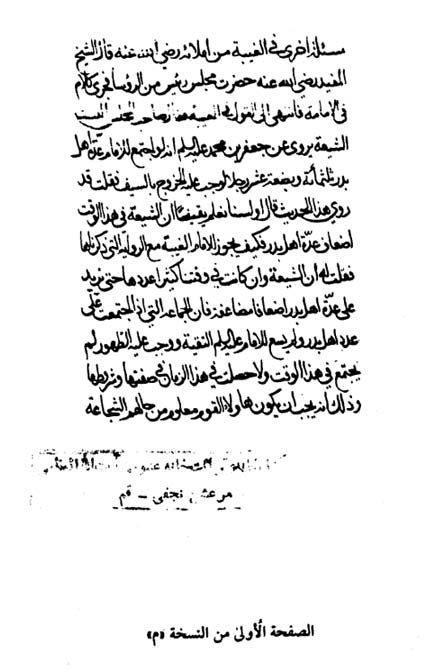 مسئلة اخرى فى الغيبة من املائه رضى الله عنه قال الشيخ
المفيد رضى الله عنه حضرت مجلس رئيس من الرؤسا فجرى كلام
فى الامامة فانتهى الى القول فى الغيبة فقال صاحب المجلس اليست
الشيعة يروى عن جعفر بن محمد عليه السلم انه لو اجتمع للامام عدّة اهل
بدر ثلثمائة وبضعة عشر رجلا لوجب عليه الخروج بالسيف فقلت قد
روى هذا الحديث قال اولسنا نعلم يقينا ان الشيعة فى هذا الوقت
اضعاف عدّة اهل بدر فكيف يجوز للامام الغيبة مع الرواية التى ذكرناها
فقلت له ان الشيعة وان كانت فى وقت كثيرا عددها حتى تزيد
على عدّة اهل بدر اضعافا مضاعفة فان الجماعة التى اذا اجتمعت على
عدد اهل بدر ولم يسع للامام عليه السلم التقية ووجب عليه الظهور لم
يجتمع فى هذا الوقت ولا حصلت فى هذا الزمان فى صفتها وشرطها
وذلك انه يجب ان يكون هاولاء القوم معلوم من حالهم الشجاعة
كتابخانه عمومى
مرعشى نجفى - قم
الصفحة الأولىٰ من النسخة «م»